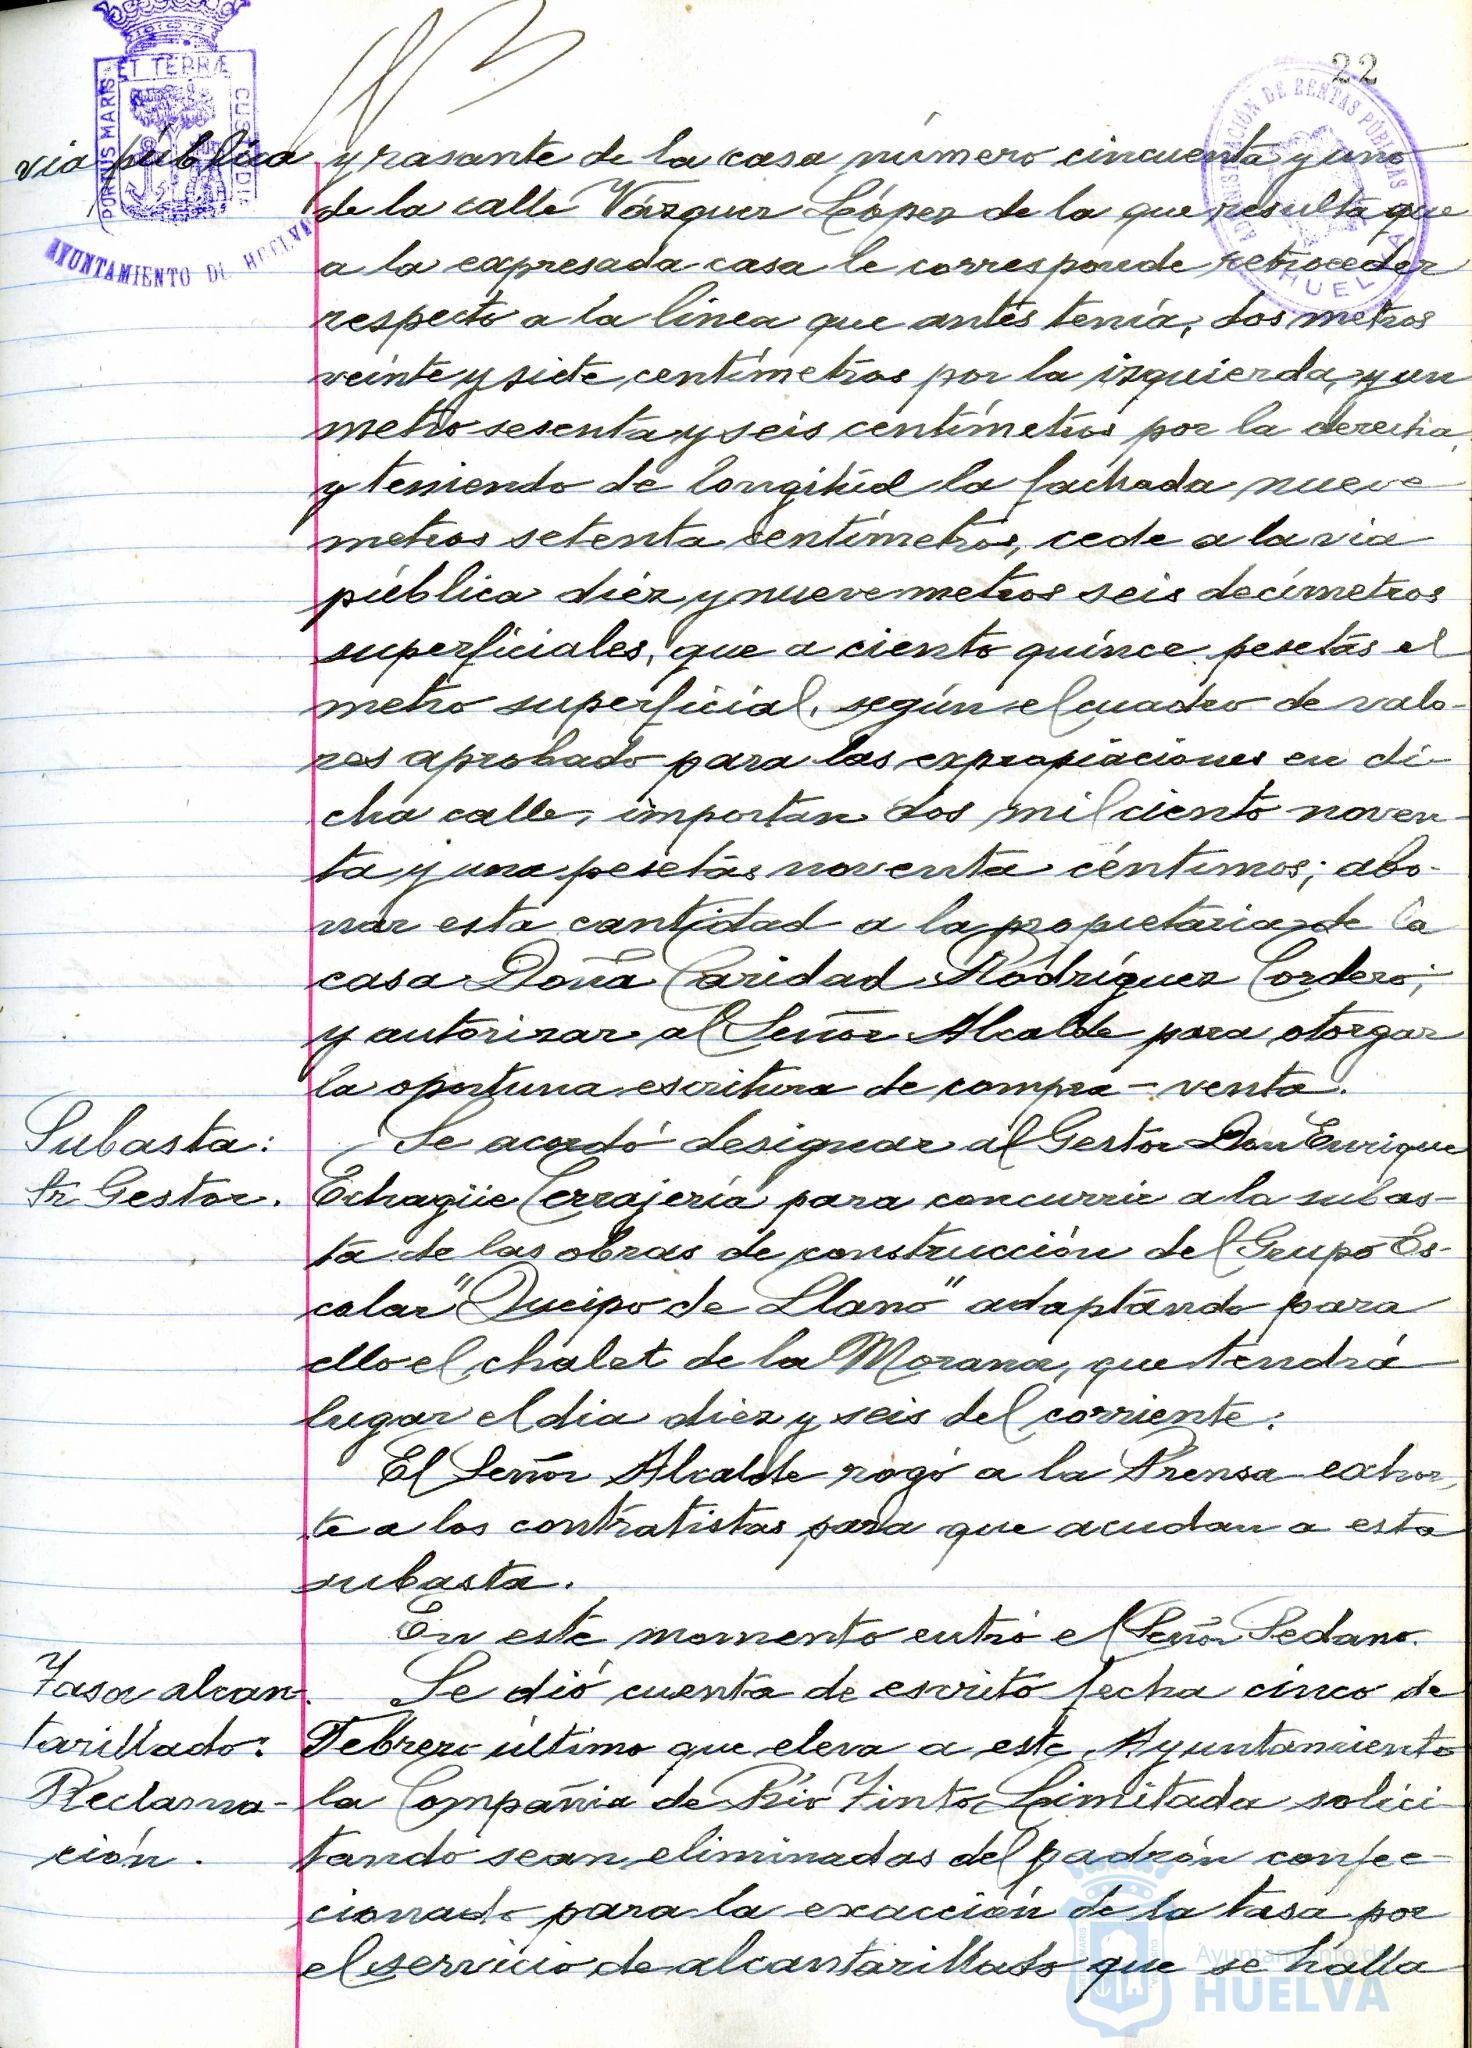 22
PORTUS MARIS ET TERRÆ CUSTODIA
AYUNTAMIENTO DE HUELVA
ADMINISTRACIÓN DE RENTAS PÚBLICAS
HUELVA
via pública y rasante de la casa número cincuenta y uno
de la calle Vázquez López de la que resulta que
a la expresada casa le corresponde retroceder
respecto a la línea que antes tenía, dos metros
veinte y siete centímetros por la izquierda, y un
metro sesenta y seis centímetros por la derecha,
y teniendo de longitud la fachada nueve
metros setenta centímetros, cede a la via
pública diéz y nueve metros seis decímetros
superficiales, que a ciento quínce pesetas el
metro superficial, según el cuadro de valo-
res aprobado para las expropiaciones en di-
cha calle, importan dos mil ciento noven-
ta y una pesetas noventa céntimos; abo-
nar esta cantidad a la propietaria de la
casa Doña Caridad Rodríguez Cordero;
y autorizar al Señor Alcalde para otorgar
la oportuna escritura de compra-venta.
Subasta:
Sr Gestor.
Se acordó designar al Gestor Don Enrique
Echagüe Cerrajería para concurrir a la subas-
ta de las obras de construcción del Grupo Es-
colar "Queipo de Llano" adaptándo para
ello el chalet de la Morana, que tendrá
lugar el dia diéz y seis del corriente.
El Señor Alcalde rogó a la Prensa exhor-
te a los contratistas para que acudan a esta
subasta.
En este momento entró el Señor Sedano.
Tasa alcan-
tarillado:
Reclama-
ción.
Se dió cuenta de escrito fecha cinco de
Febrero último que eleva a este Ayuntamiento
la Compañia de Río Tinto Limitada solici-
tando sean eliminadas del padrón confec-
cionado para la exacción de la tasa por
el servicio de alcantarillado que se halla
Ayuntamiento de
HUELVA